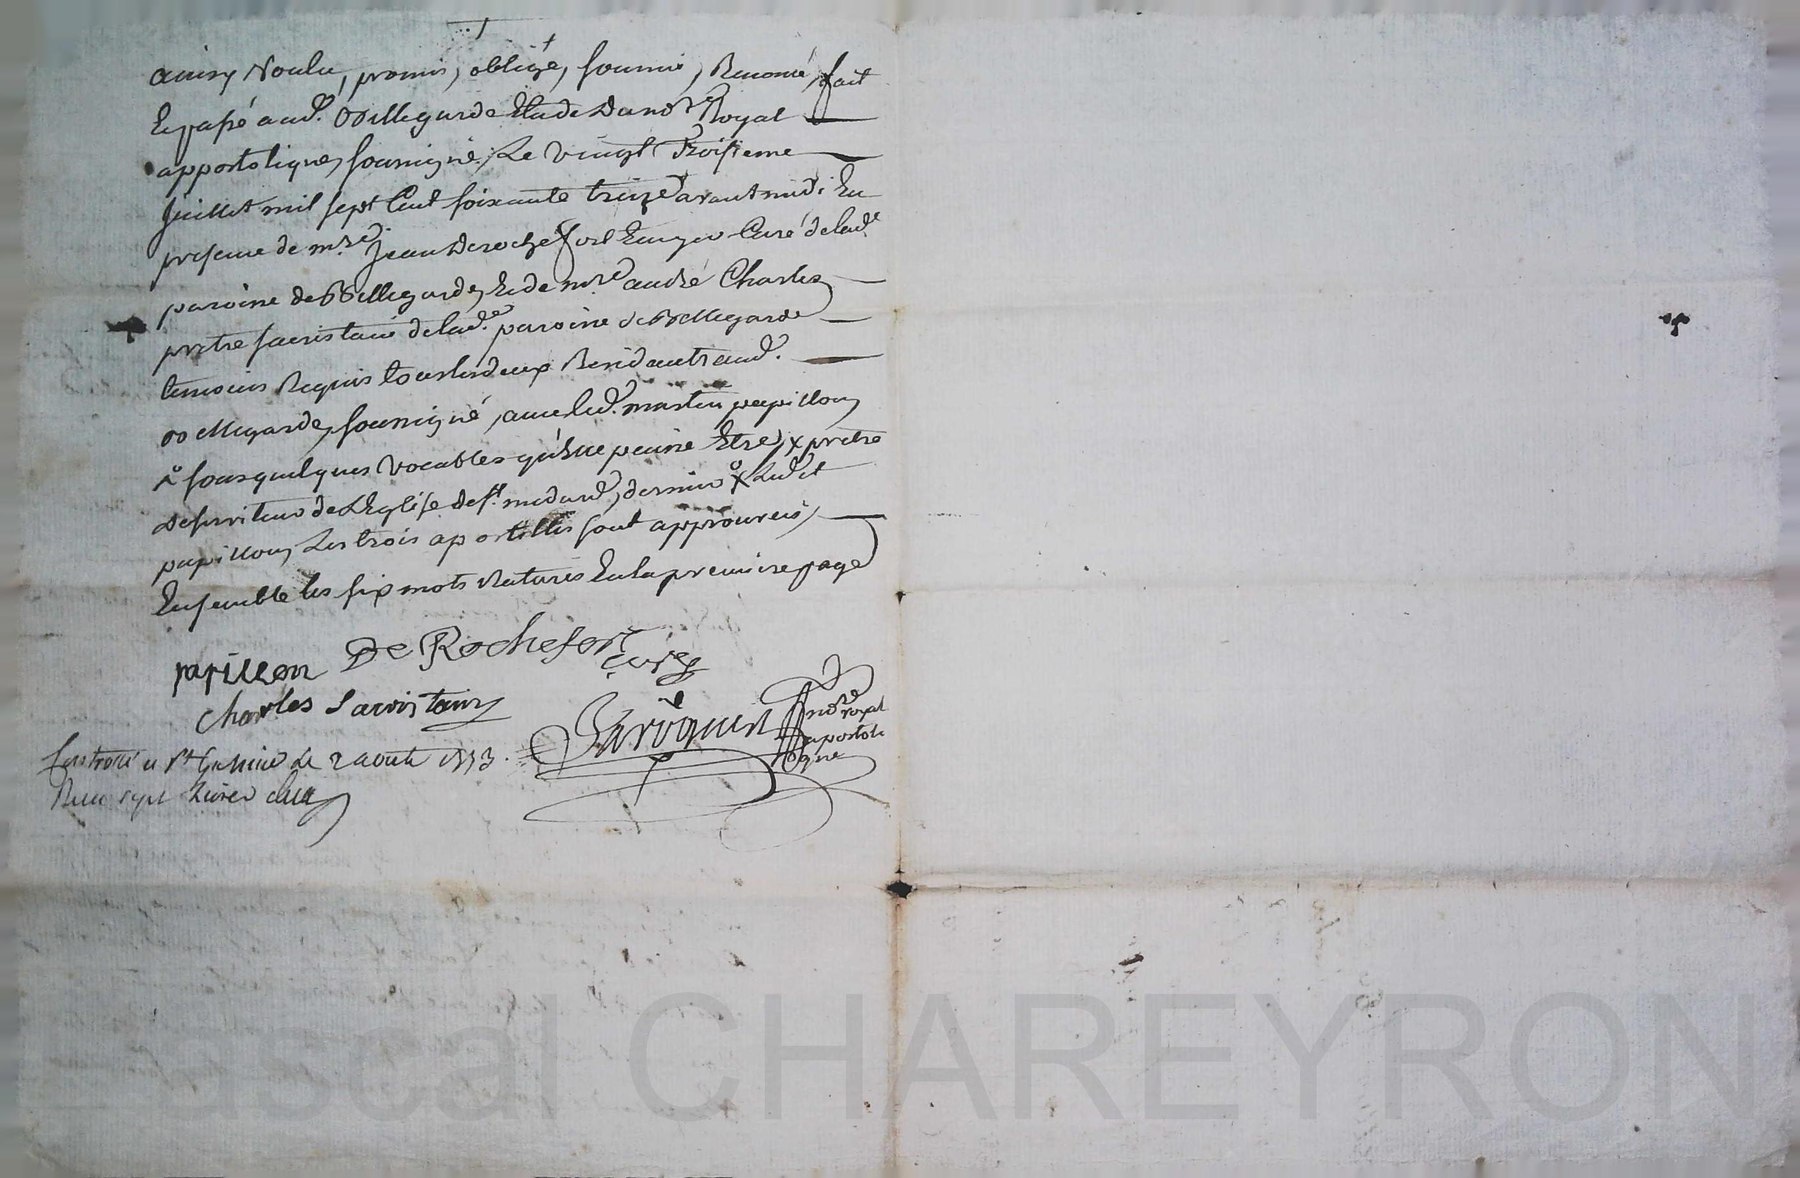 ainsy voulu, promis, obligé, soumis, Renoncé, fait
Et passé aud. Bellegarde Etude Du no.re Royal
appostolique, soussigné, Le vingt Troisieme
Juillet mil sept Cent soixante treize avant midi En
presence de m.re Jean Derochefort Ecuyer Curé de lad.e
paroisse de Bellegarde, Et de m.re andré Charles
pretre sacristain de lad.e paroisse de Bellegarde
temoins Requis tous les deux Residants aud.
Bellegarde, soussigné, avec led. martin papillon,
sous quelques vocables qu'Elle puisse Etre, x pretre
desserviteur de L'Eglise de s.t medard, dernier x Ledit
papillon, Les trois apostilles sont approuvéés,
Ensemble les six mots Raturés En la premiere page
papillon De Rochefort curé
Charles Sacristain
no.re royal
apostoli
que
à s.t le 2 aoust 1773.
Reçu sept Livres
ascal CHAREYRON